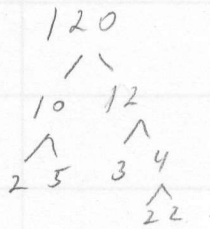 120
10 12
2 5 3 4
2 2